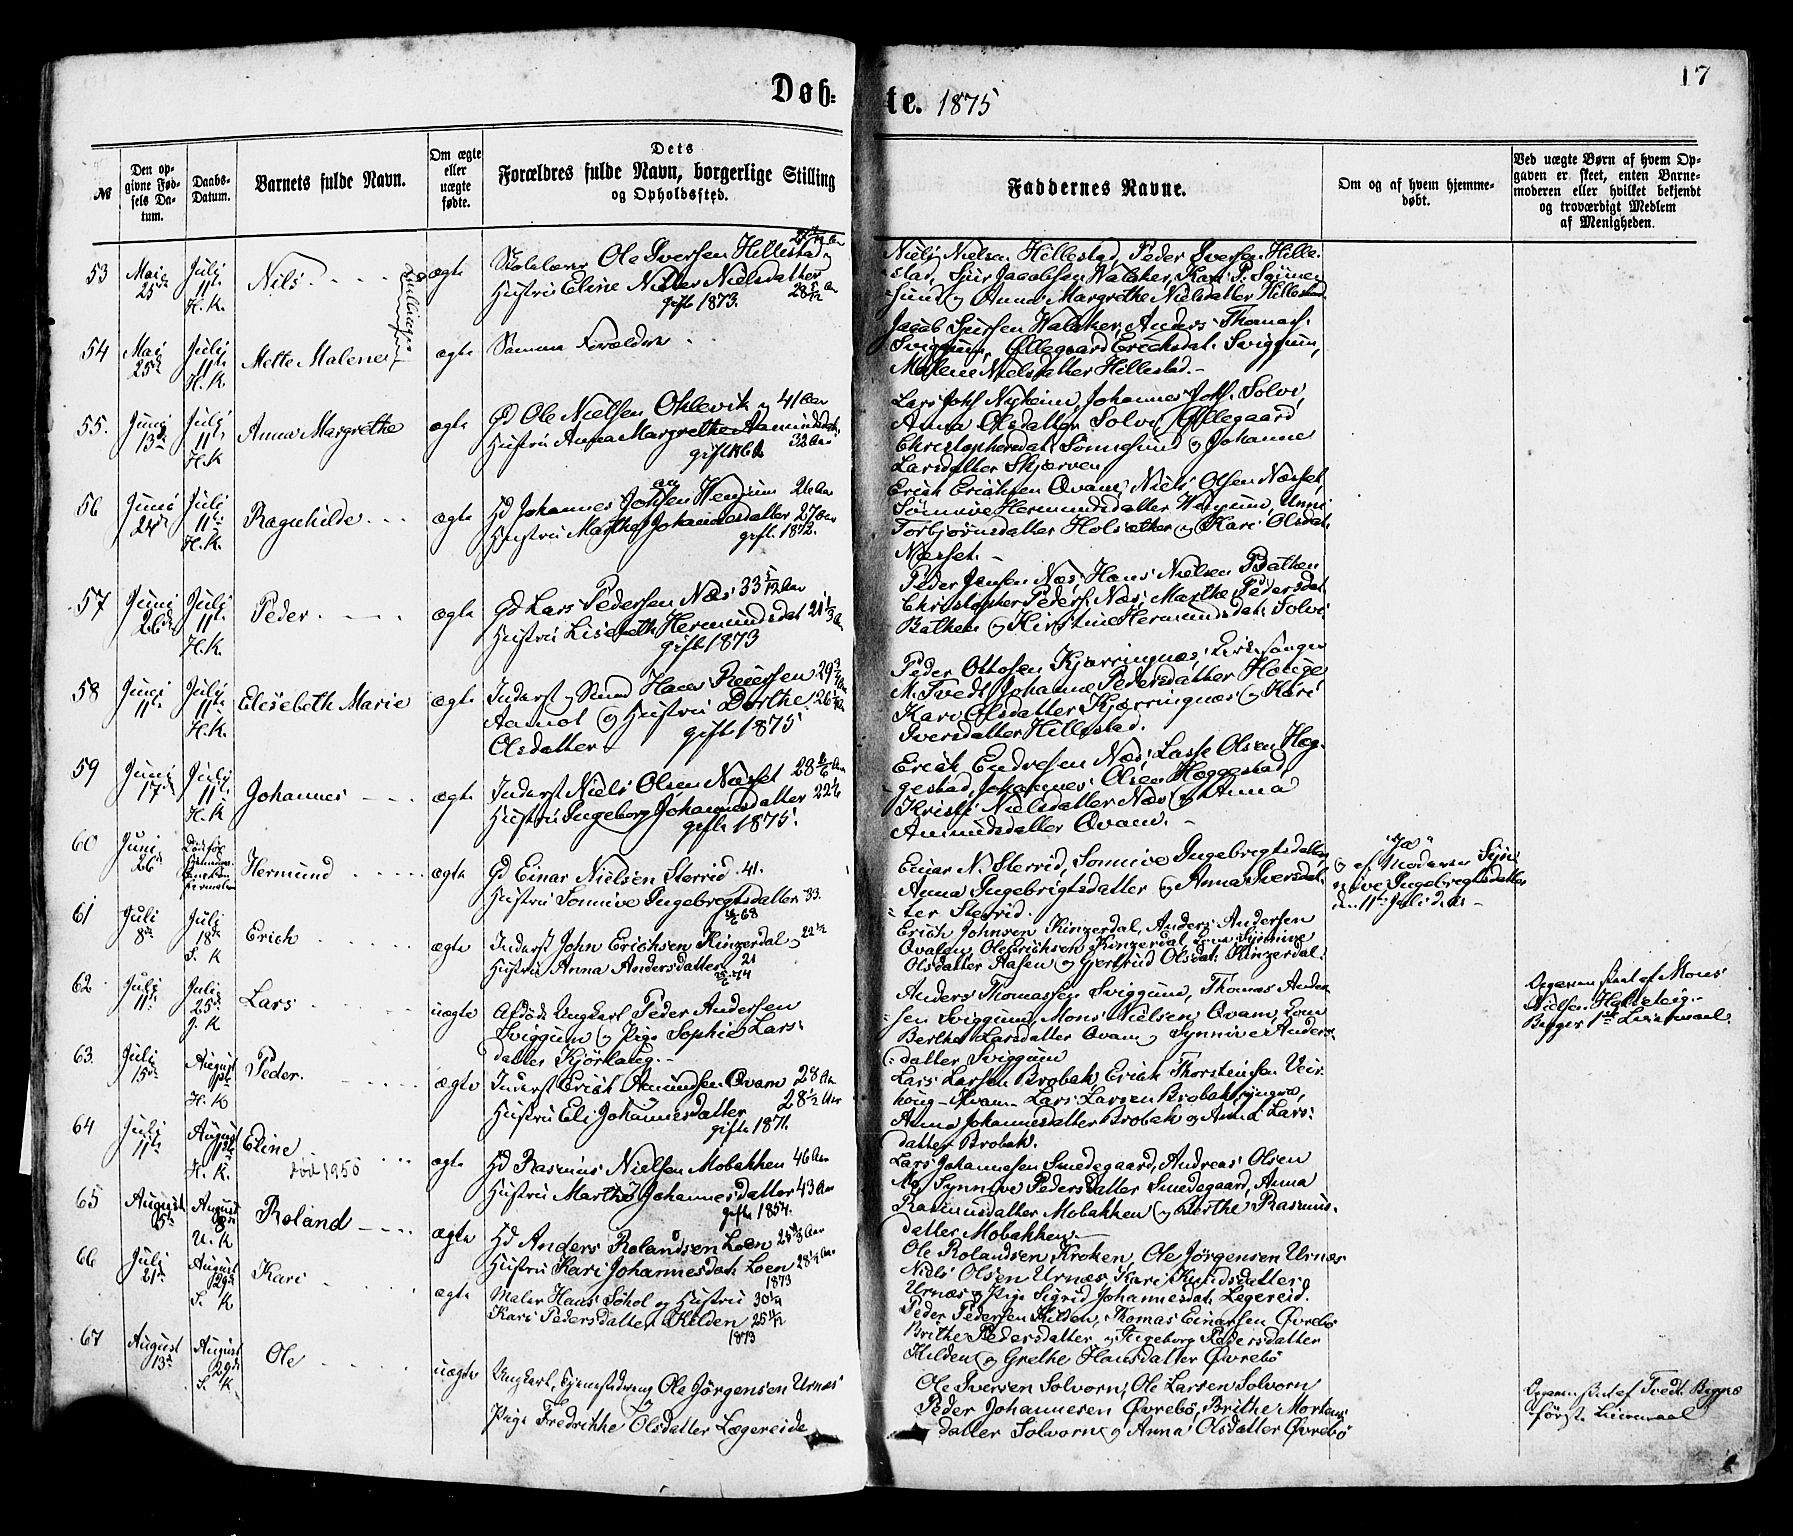 Døb-te. 1875
17
№
Den opgivne Fødsels Datum.
Daabs-Datum.
Barnets fulde Navn.
Om ægte eller uægte fødte.
Dets Forældres fulde Navn, borgerlige Stilling og Opholdssted.
Faddernes Navne.
Om og af hvem hjemmedøbt.
Ved uægte Børn af hvem Opgaven er skeet, enten Barnemoderen eller hvilket bekjendt og troværdigt Medlem af Menigheden.
53 Mai 25 Juli 11te H.K. Nils ægte
Ole Iversen Hillestad
Hustru Eline Nielsdatter
gift 1873.
Niels Nielsen Hillestad, Peder Iversen Hille-
stad, Sjur Jacobsen Walaker, Kari P. Sønne-
sund og Anna Margrethe Nielsdatter Hillestad
54 Mai 25 Juli 11te H.K. Mette Malene ægte
Tvillinger
Samme Forældre
Jacob Sjursen Walaker, Anders Thomas.
Sviggum, Øllegaard Erichsdat. Sviggum,
Malene Nielsdatter Hillestad.
55. Juni 13de Juli 11te H.K Anna Margrethe ægte
Gd Ole Nielsen Ohlevik og 41 Aar
Hustru Anna Margrethe 32 Aar
gift
Lars Johs Nyheim, Johannes Joh. Solvi,
Anna Olsdatter Solvi, Øllegaard
Christophersdat. Sønnesund og Johanne
Larsdatter Skjærven
56 Juni 24de Juli 11te H.K. Ragnhilde ægte
Gd Johannes Wengum 26 Aar
Hustru Marthe Johannesdatter 27 Aar
gift. 1872.
Erich Erichsen Qvam, Niels Olsen Næsset,
Sønnive Hermundsdatter Wengum, Unni
Torbjørnsdatter Holsæther og Kari Olsdat.
Næsset.
57 Juni 26de Juli 11te H.K. Peder ægte
Gd Lars Pedersen Næs 33 5/12 Aar
Hustru Lisebeth Hermundsdat 21 1/3 Aar
gift 1873
Peder Jensen Næs, Hans Nielsen Bathen
Christopher Peders. Næs, Marthe Pedersdat.
Bathen og Kirstine Hermundsdat. Solvi
58 Juni 11te Juli 11te H.K. Elisebeth Marie ægte
Inderst og Smed Hans Reiersen 29 3/4
Aamot og Hustru Dorthe 26
Olsdatter gift 1875
Peder Ottosen Kjærringnæs, Kirkesanger
M. Tvedt, Johanne Pedersdatter Houge
Kari Olsdatter Kjærringnæs og Kari
Iversdatter Hillestad.
59 Juni 17de Juli 11te H.K Johannes ægte
Inderst Niels Olsen Næsset 28
Hustru Ingeborg Johannesdatter 22
gift. 1875.
Erich Endresen Næs, Lasse Olsen Hæg-
gestad, Johannes Olsen Hæggestad,
Kristi Nielsdatter Næs og Anna
Amundsdatter Qvam.
60 Juni 26 Hermund ægte
Gd Einar Nielsen Sterrid 41.
Hustru Sønnive Ingebregtsdatter 33.
68
Einar N. Sterrid, Sønnive Ingebregtsdatter,
Anna Ingebrigtsdatter og Anna Iversdat-
ter Sterrid.
"Ja"
og af Moderen Syn-
nive Ingebregtsdatter
den 11te Juli d.A.
61 Juli 8de Juli 18de S. K Erich ægte
Inderst John Erichsen Kinzerdal og 22 1/2
Hustru Anna Andersdatter 21
Erich Johnsen Kinzerdal, Anders Andersen
Qvalen, Ole Erichsen Kinzerdal, Synnive
Olsdatter Aasen og Gjertrud Olsdat. Kinzerdal.
62 Juli 11te Juli 25de J. K Lars uægte
Afdøde Ungkarl Peder Andersen
Sviggum og Pige Sophie Lars-
datter Kjørlaug.
Anders Thomassen Sviggum, Thomas Ander-
sen Sviggum, Mons Nielsen Qvam,
Berthe Larsdatter Qvam og Synnive Anders-
datter Sviggum
Opgaven skeet af Mons
Nielsen
Begges 1ste Leiermaal.
63. Juli 15de August 1ste H. K Peder. ægte
Inderst Erich Amundsen Qvam 28 Aar
Hustru Eli Johannesdatter 28 1/2 Aar
gift. 1871.
Lars Larsen Brobak, Erich Thorsteinsen Veir-
houg Qvam Lars Larsen Brobak yngre,
Anna Johannesdatter Brobak og Anna Lars-
datter Brobak.
64 Juli 11te August 1ste H. K. Eline død 1950 ægte
Gd Rasmus Nielsen Mobakken 46 Aar
Hustru Marthe Johannesdatter 43 Aar
gift. 1854.
Lars Johannesen Smedegaard, Andreas Olsen
Mo, Synnive Pedersdatter Smedegaard, Anna
Rasmusdatter Mobakken og Berthe Rasmus-
datter Mobakken
65 August 5te August 8de U. K Roland ægte
Gd Anders Rolandsen Loen 25 Aar
Hustru Kari Johannesdat. Loen 28 1/2 Aar
1873
Ole Rolandsen Kroken, Ole Jørgensen Urnæs
Niels Olsen Urnæs, Kari Knudsdatter
Urnæs og Pige Sigrid Johannesdat. Legereid.
66 Juli 21de August 29de S. K Kari ægte
Maler Hans Søhol og Hustru 30
Kari Pedersdatter Kilden 25
1873
Peder Pedersen Kilden, Thomas Einarsen Øvrebø
Brithe Pedersdatter og Ingeborg Pedersdatter
Kilden og Grethe Hansdatter Øvrebø
67 August 13de August 29de S. K Ole uægte
Ungkarl, Ole Jørgensen Urnæs
og
Pige Fredrikke Olsdatter Lægereide
Ole Iversen Solvorn, Ole Larsen Solvorn
Peder Johannesen Øvrebø, Brithe Mortens-
datter Solvorn og Anna Olsdatter Øvrebø
Opgaven skeet af Tvedt. Begges
første Leiermaal